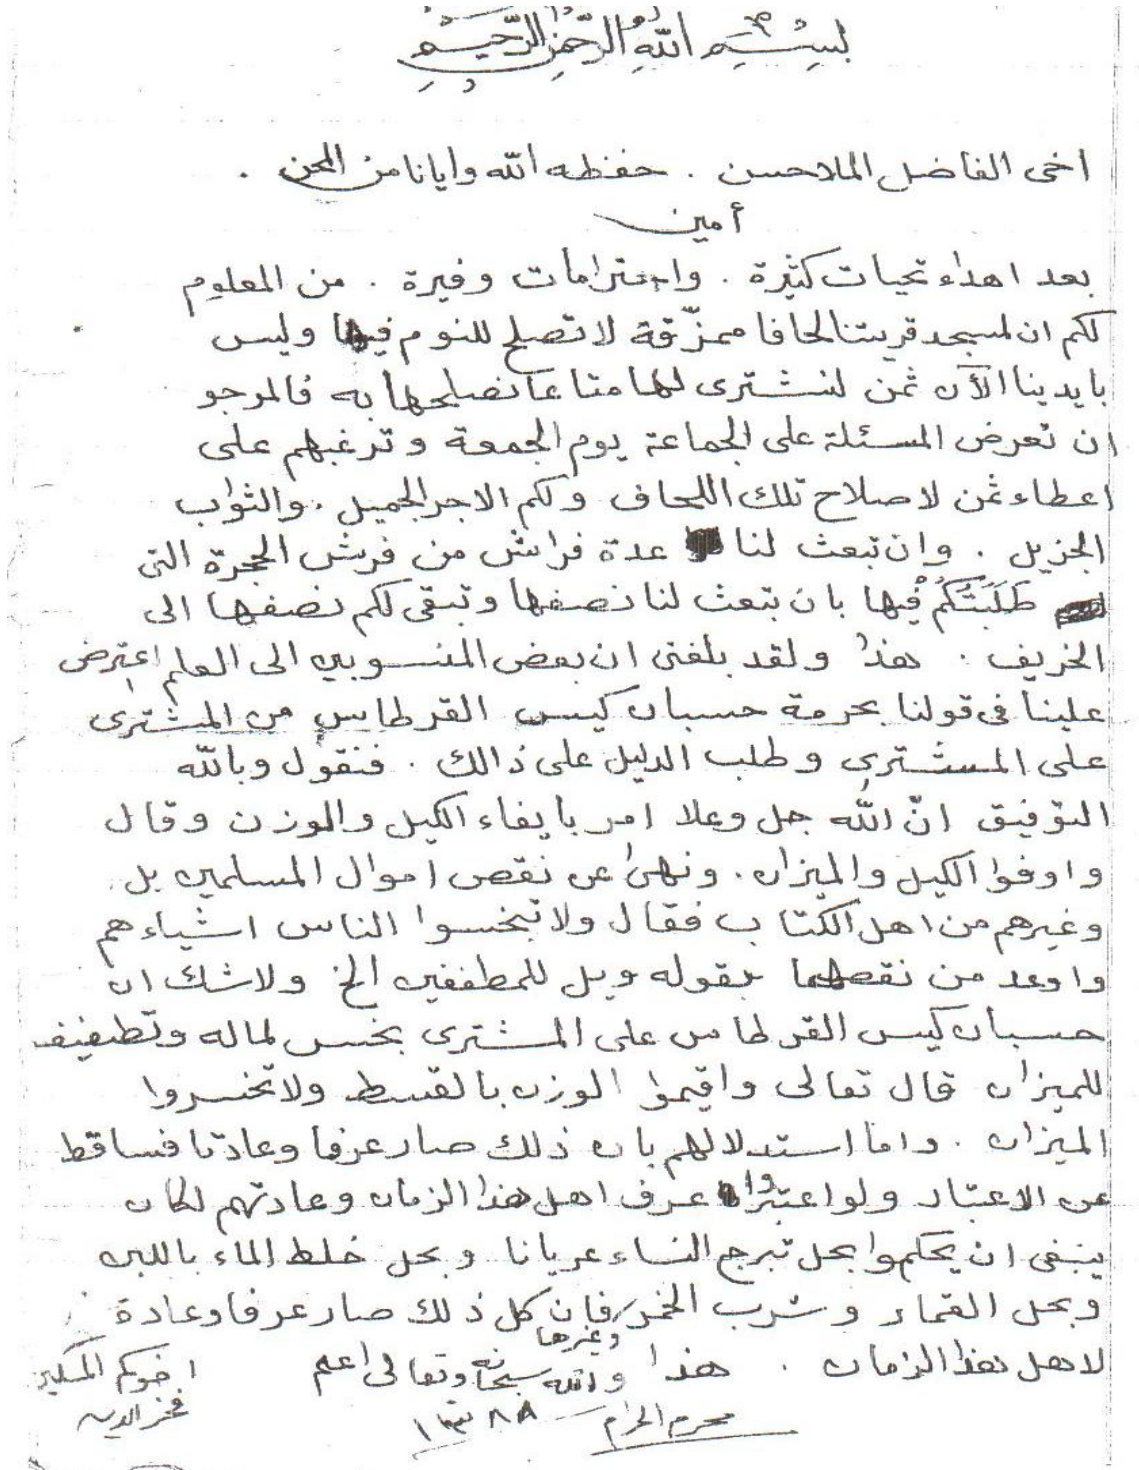 بِسْمِ اللهِ الرَّحْمٰنِ الرَّحِيمِ
اخى الفاضل الملاحسن . حفظه الله وايانا من المحن .
أمين
بعد اهداء تحيات كثيرة . واحترامات وفيرة . من المعلوم
لكم ان لمسجد قريتنا لحافا ممزّقة لا تصلح للنوم فيها وليس
بايدينا الآن ثمن لنشترى لها متاعا نصلحها به فالمرجو
ان تعرض المسئلة على الجماعة يوم الجمعة وترغبهم على
اعطاء ثمن لاصلاح تلك اللحاف ولكم الاجر الجميل . والثواب
الجزيل . وان تبعث لنا عدة فراش من فرش الحجرة التى
طَلَبْتُكُمْ فِيها بان تبعث لنا نصفها وتبقى لكم نصفها الى
الخريف . هذا ولقد بلغنى ان بعض المنسوبين الى العلم اعترض
علينا فى قولنا بحرمة حسبان كيس القرطاس من المشترى
على المشترى وطلب الدليل على ذالك . فنقول وبالله
التوفيق انّ الله جل وعلا امر بايفاء الكيل والوزن وقال
واوفوا الكيل والميزان . ونهى عن نقص اموال المسلمين بل
وغيرهم من اهل الكتاب فقال ولا تبخسوا الناس اشياءهم
واوعد من نقصهما بقوله ويل للمطففين الخ ولاشك ان
حسبان كيس القرطاس على المشترى بخس لماله وتطفيف
للميزان قال تعالى واقيموا الوزن بالقسط ولا تخسروا
الميزان . واما استدلالهم بان ذلك صار عرفا وعادتا فساقط
عن الاعتبار ولو اعتبروا عرف اهل هذا الزمان وعادتهم لكان
ينبغى ان يحكموا بحل تبرج النساء عريانا وبحل خلط الماء باللبن
وبحل القمار وشرب الخمر وغيرها فان كل ذلك صار عرفا وعادة
لاهل هذا الزمان . هذا والله سبحانه وتعالى اعلم
اخوكم المسكين
فخر الدين
محرم الحرام ١٣٨٨